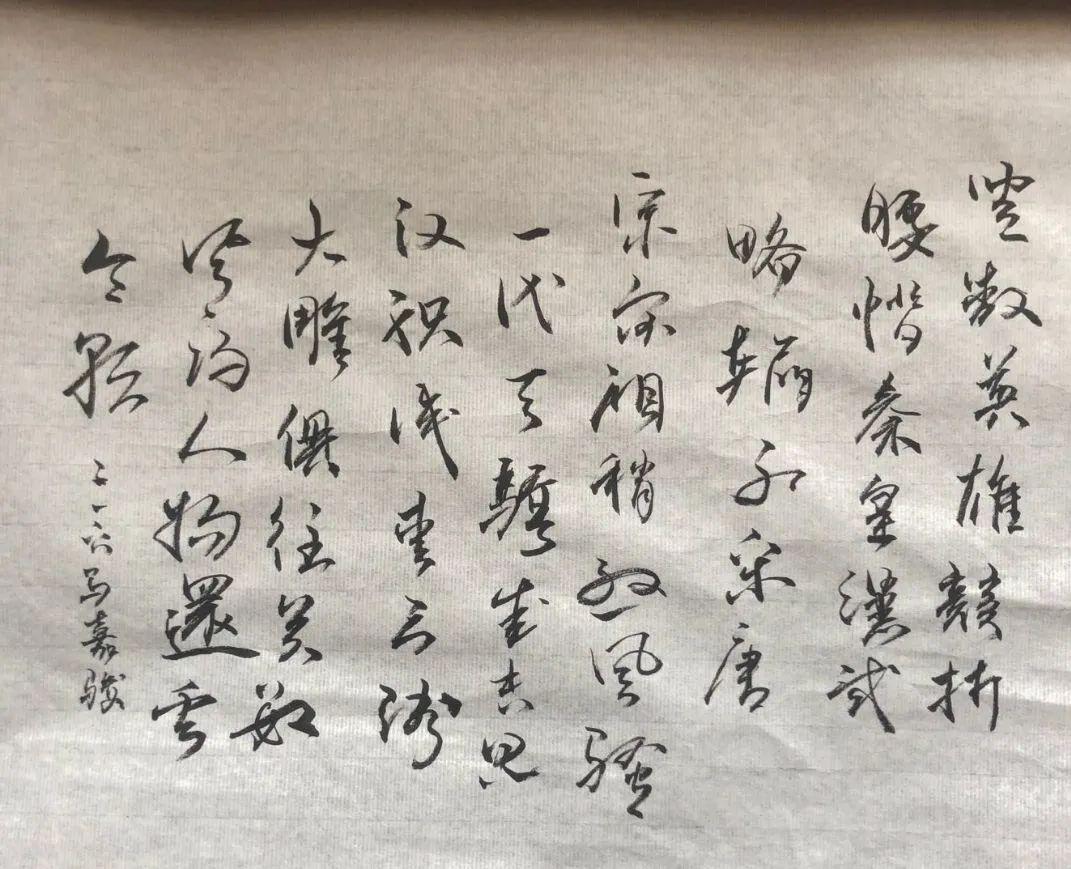 無数英雄競折
腰惜秦皇漢武
略輸文采唐
宗宋祖稍逊風騷
一代天驕成吉思
汗祇识弯弓射
大雕俱往矣数
风流人物還看
今朝
二〇一六马嘉骏